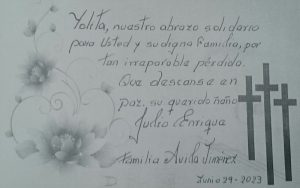 Yolita, nuestro abrazo solidario
para Usted y su digna Familia, por
tan irreparable pérdida.
Que descanse en
paz, su querido ñaño
Julio Enrique
Familia Avila Jiménez
Junio 29-2023